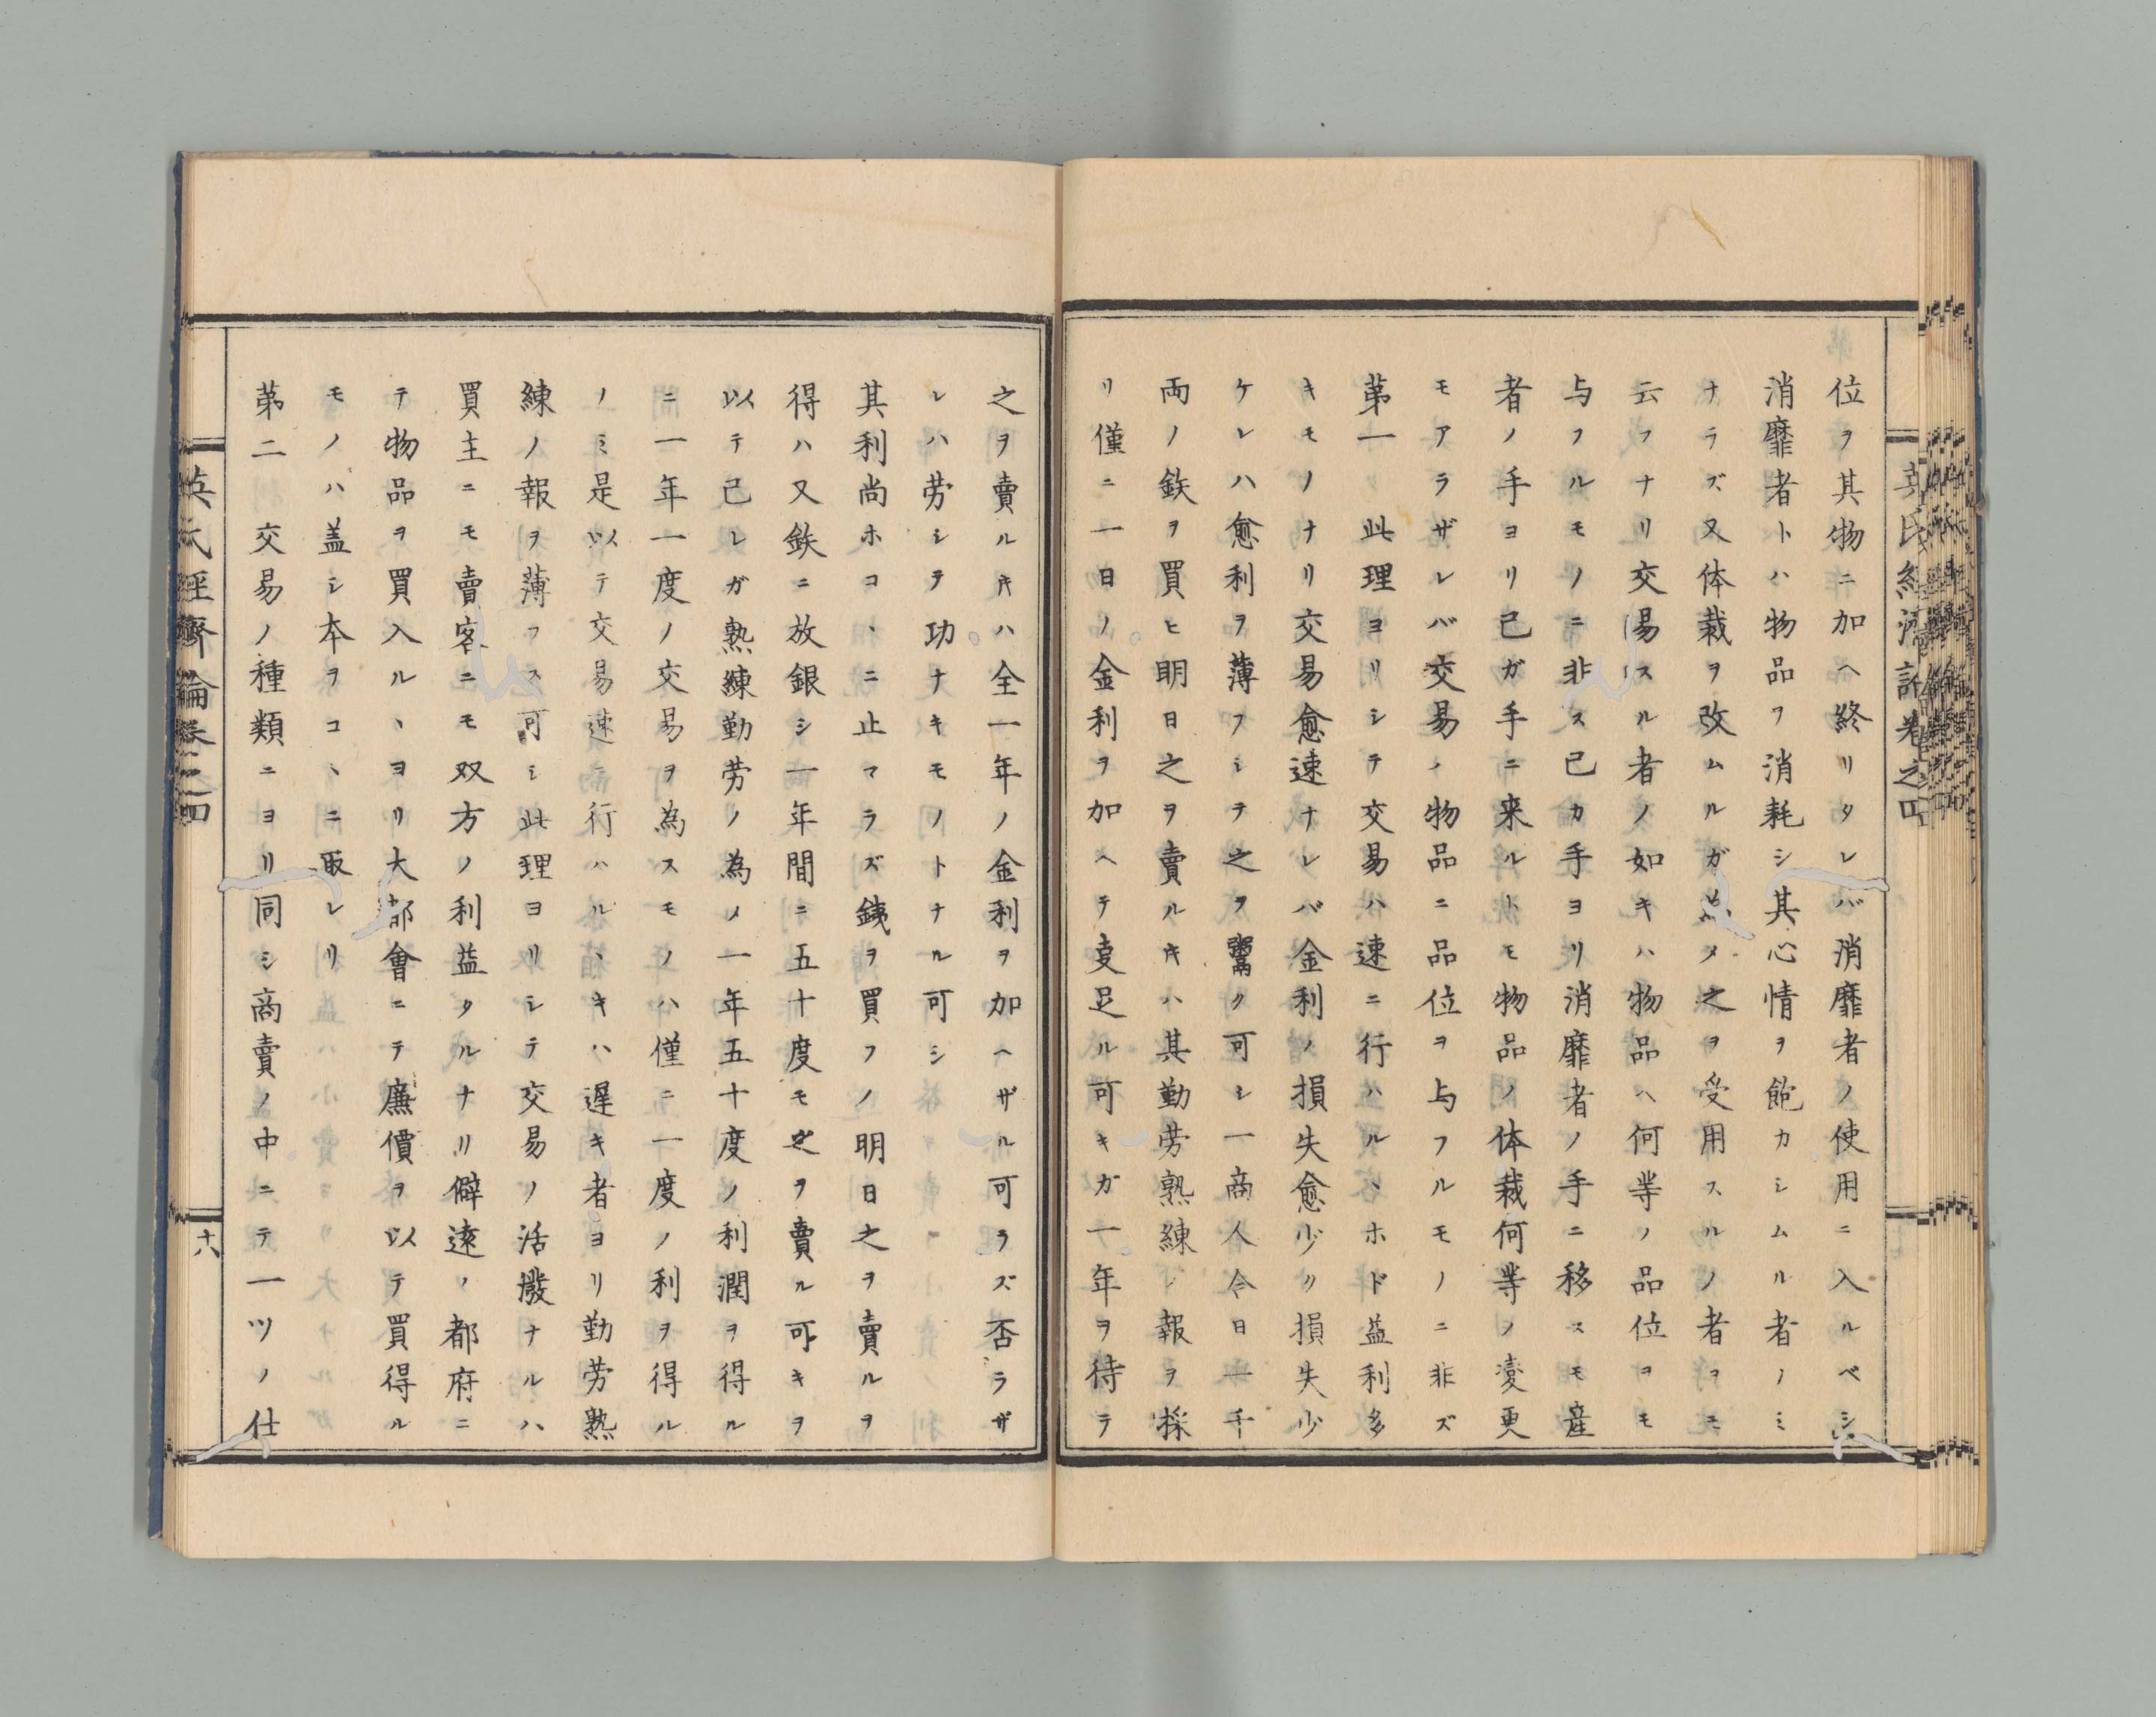 位ヲ其物ニ加ヘ終リタレバ消靡者ノ使用ニ入ルベシ
消靡者トハ物品ヲ消耗シ其心情ヲ飽カシムル者ノミ
ナラズ又体裁ヲ改ムルガ為タ之ヲ受用スルノ者ヲモ
云フナリ交易スル者ノ如キハ物品ヘ何等ノ品位ヲモ
与フルモノニ非ス已カ手ヨリ消靡者ノ手ニ移スモ産
者ノ手ヨリ已ガ手ニ来ルトモ物品ノ体裁何等ノ変更
モアラザレバ交易ノ物品ニ品位ヲ与フルモノニ非ズ
苐一 此理ヨリシテ交易ハ速ニ行ハルヽホド益利多
キモノナリ交易愈速ナレバ金利ノ損失愈少シ損失少
ケレハ愈利ヲ薄フシテ之ヲ鬻ク可シ一商人今日一千
両ノ鉄ヲ買ヒ明日之ヲ賣ルキハ其勤劳熟練ノ報ヲ採
リ僅ニ一日ノ金利ヲ加ヘテ支足ル可キガ一年ヲ待テ
之ヲ賣ルキハ全一年ノ金利ヲ加ヘザル可ラズ否ラザ
レハ劳シテ功ナキモノトナル可シ
其利尚ホコヽニ止マラズ銕ヲ買フノ明日之ヲ賣ルヲ
得ハ又鉄ニ放銀シ一年間ニ五十度モ之ヲ賣ル可キヲ
以テ己レガ熟練勤劳ノ為メ一年五十度ノ利潤ヲ得ル
ニ一年一度ノ交易ヲ為スモノハ僅ニ一度ノ利ヲ得ル
ノミ是以テ交易速ニ行ハルヽキハ遅キ者ヨリ勤劳熟
練ノ報ヲ薄フス可シ此理ヨリシテ交易ノ活溌ナルハ
買主ニモ賣客ニモ双方ノ利益タルナリ僻遠ノ都府ニ
テ物品ヲ買入ルヽヨリ大都會ニテ廉價ヲ以テ買得ル
モノハ盖シ本ヲコヽニ取レリ
苐二 交易ノ種類ニヨリ同シ商賣ノ中ニテ一ツノ仕
英氏経済論巻之四
十八